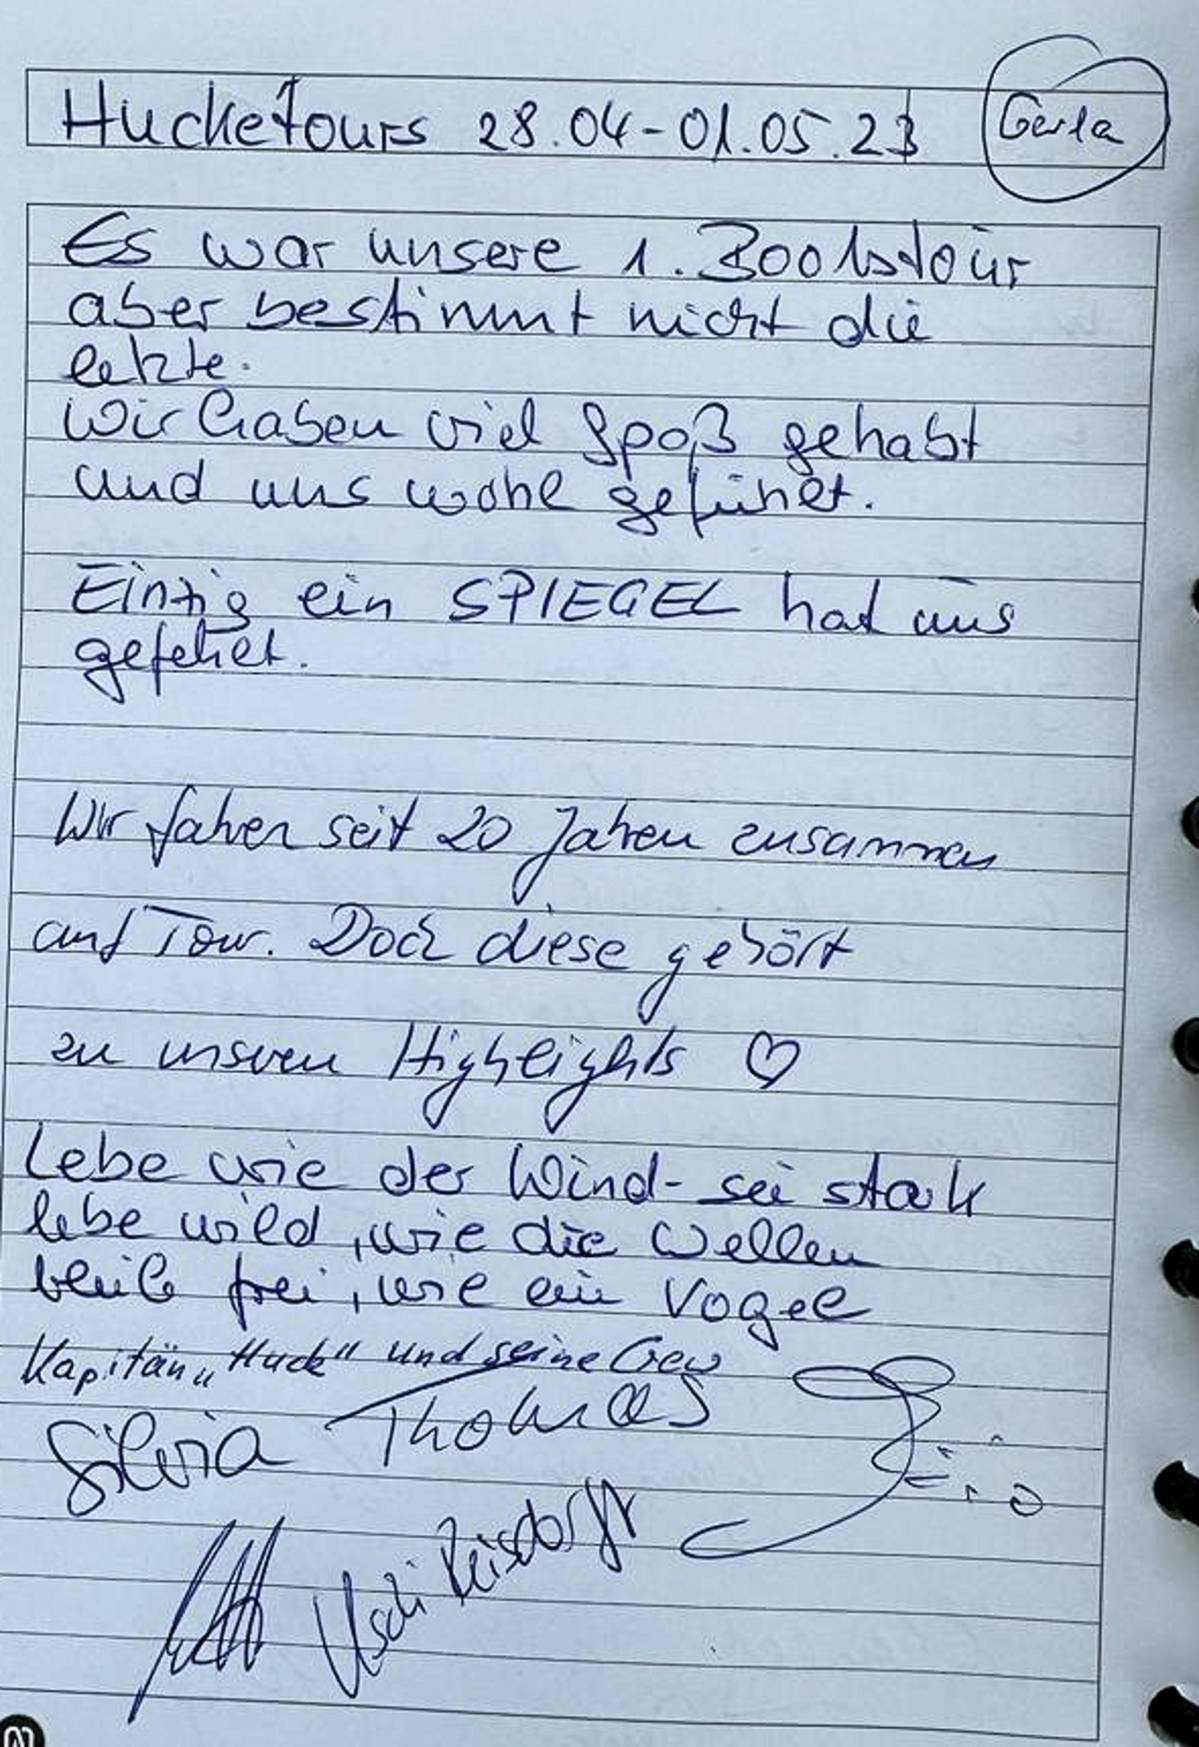 HuckeTours 28.04-01.05.23 Gerla
Es war unsere 1. Bootstour
aber bestimmt nicht die
letzte.
Wir haben viel Spaß gehabt
und uns wohl gefühlt.
Einzig ein SPIEGEL hat uns
gefehlt.
Wir fahren seit 20 Jahren zusammen
auf Tour. Doch diese gehört
zu unseren Highlights ♡
Lebe wie der Wind - sei stark
lebe wild, wie die Wellen
bleib frei, wie ein Vogel
Kapitän „Huck" und seine Crew
Silvia Thomas
Uschi Reisdorff